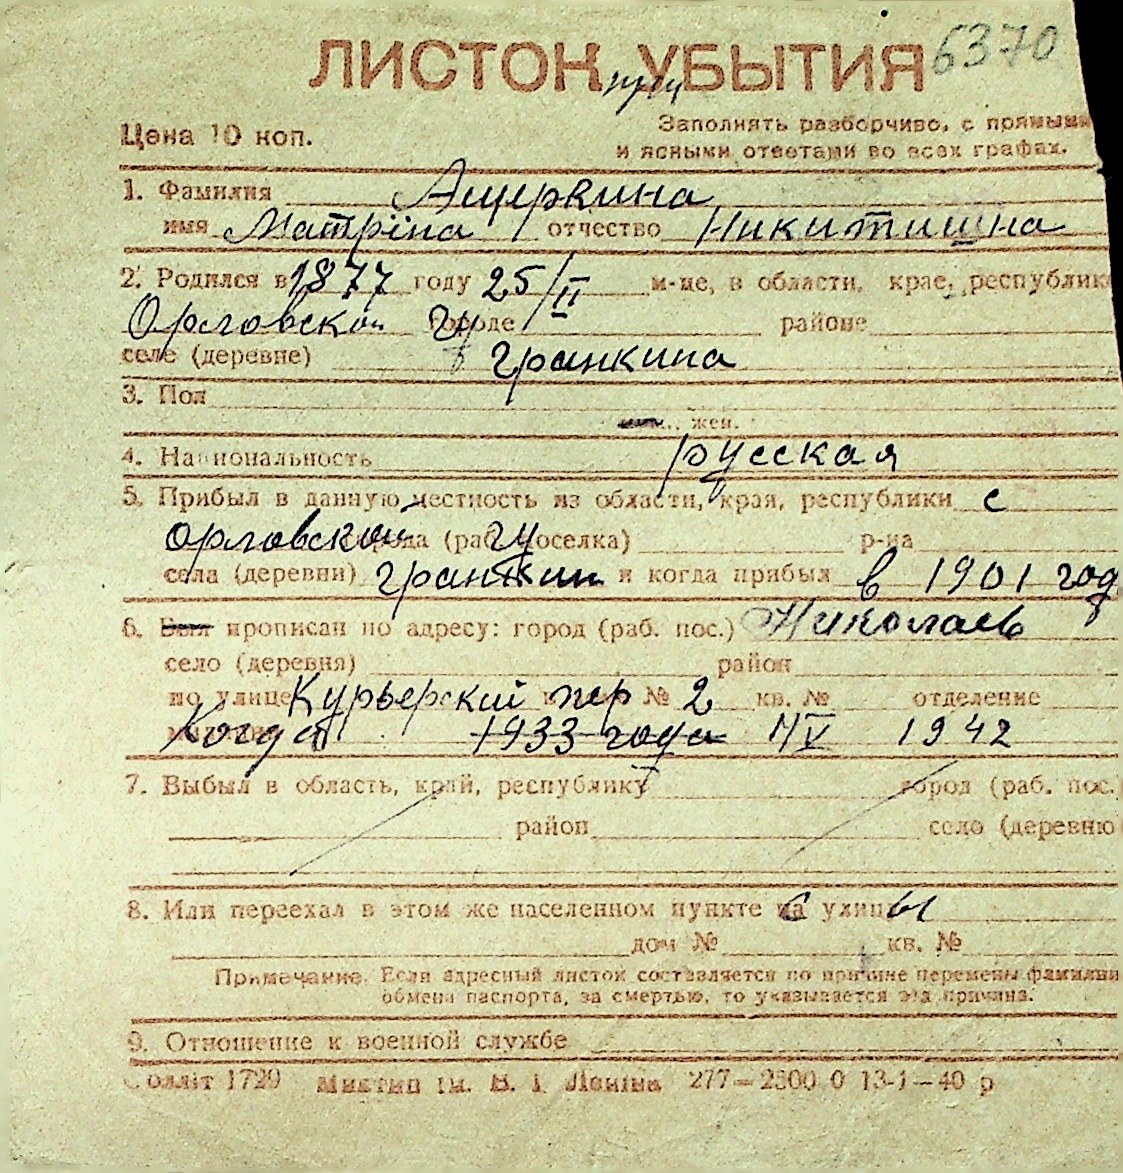 6370
ЛИСТОК УБЫТИЯ
Цена 10 коп.
Заполнять разборчиво, с прямыми
и ясными ответами во всех графах.
1. Фамилия Ащеркина
имя Матрёна отчество Никитишна
2. Родился в 1877 году 25/II м-це, в области, крае, республике
Орловской гу городе районе
селе (деревне) гранкина
3. Пол
жен.
4. Национальность русская
5. Прибыл в данную местность из области, края, республики с
орловской гу города (раб. поселка) р-на
села (деревни) гранкин и когда прибыл в 1901 год
6. Был прописан по адресу: город (раб. пос.) Николаев
село (деревня) район
по улице Курьерский пер № 2 кв. № отделение
Когда 1933 года IV 1942
7. Выбыл в область, край, республику город (раб. пос.)
район село (деревню
8. Или переехал в этом же населенном пункте с улицы
дом № кв. №
Примечание. Если адресный листок составляется по причине перемены фамилии
обмена паспорта, за смертью, то указывается эта причина.
9. Отношение к военной службе
1729 им. В. І. Леніна 277—2500 0 13-1—40 р